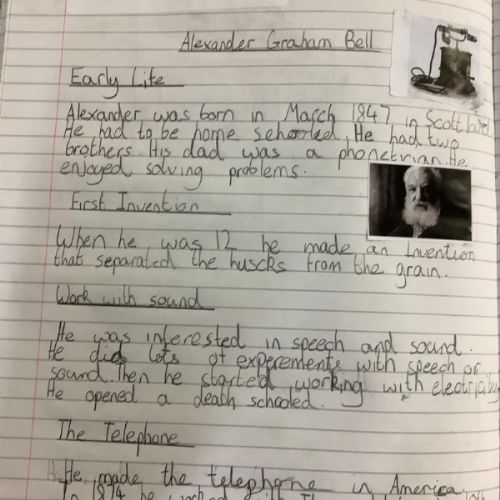 Alexander Graham Bell
Early Life
Alexander was born in March 1847 in Scotland
He had to be home schooled. He had two
brothers. His dad was a phonetrian. He
enjoyed solving problems.
First Invention
When he was 12 he made an invention
that separated the huscks from the grain.
Work with sound
He was interested in speech and sound.
He did lots of experements with speech or
sound. Then he started working with electricity
He opened a death schooled.
The Telephone
He made the telephone in America.
In 1874 he